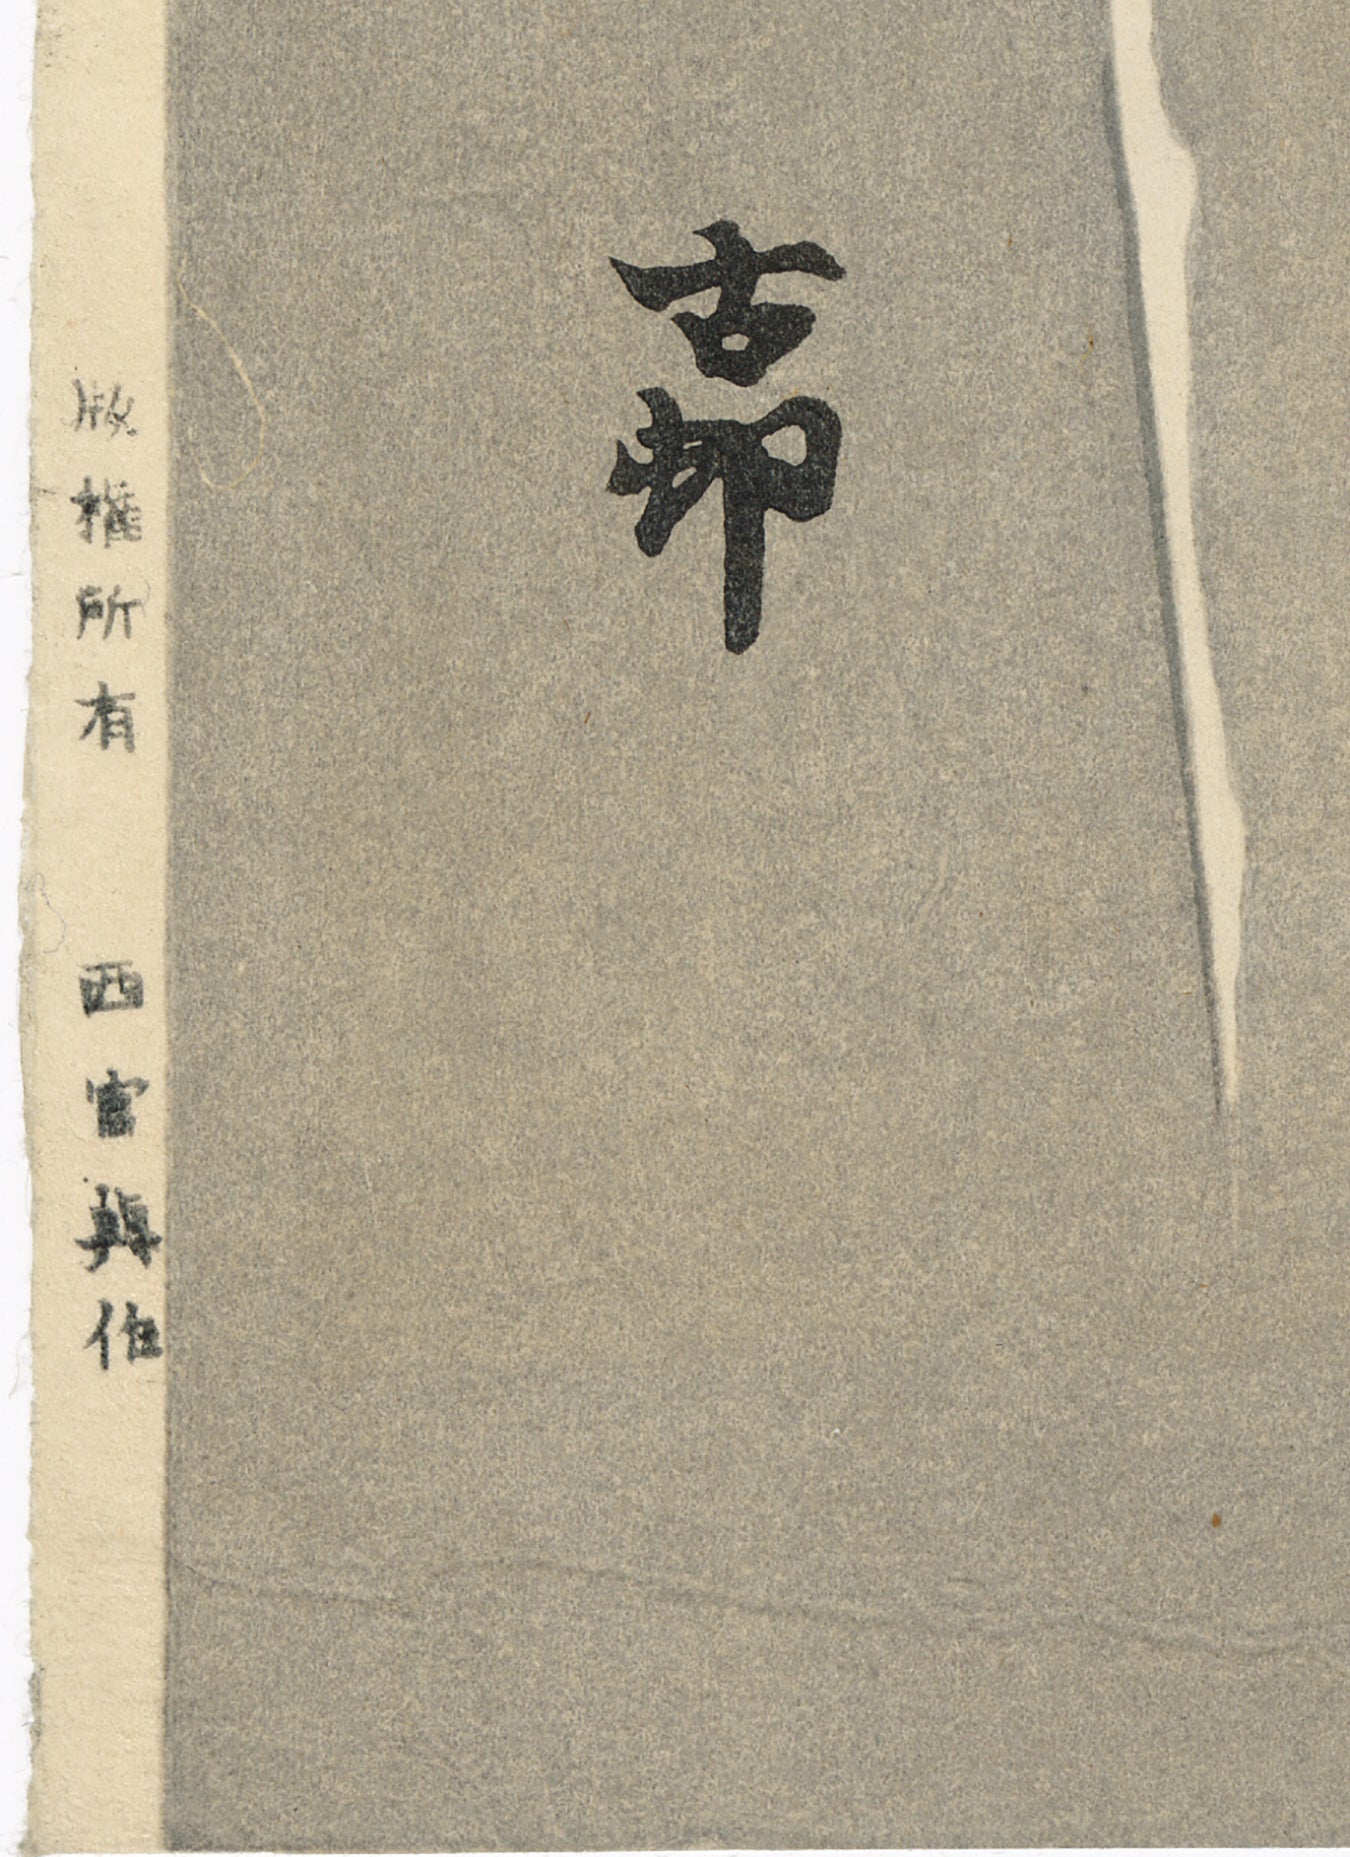 古邨
版権所有 西宮與作